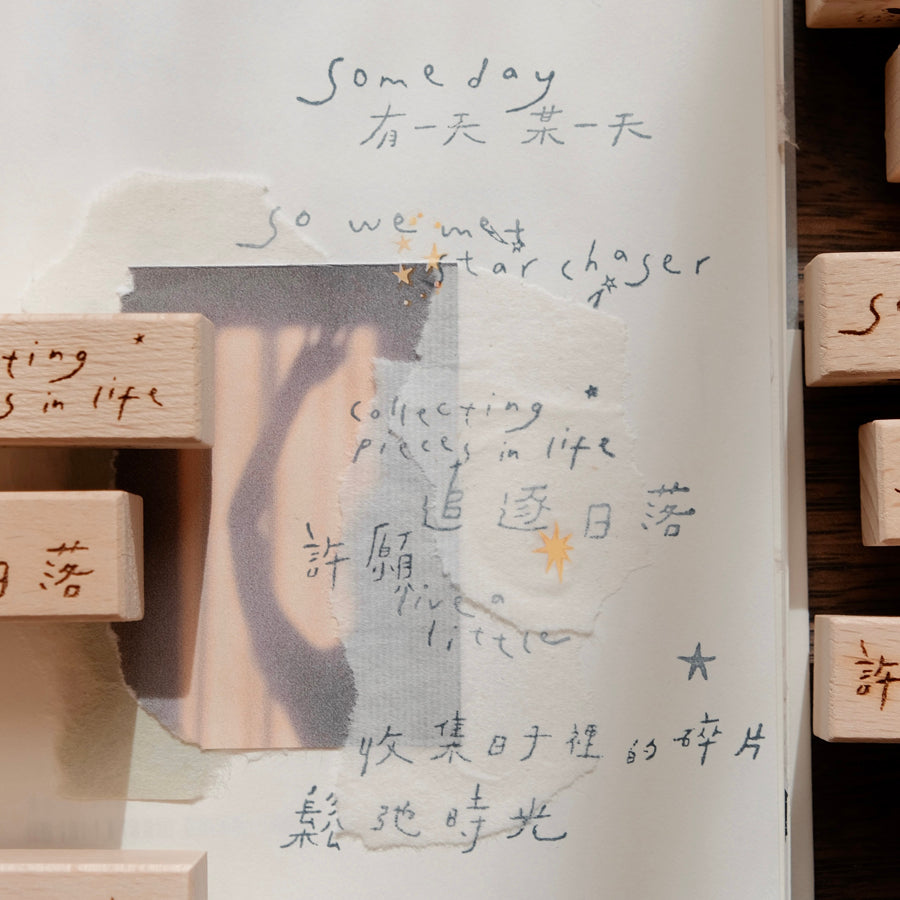 someday
有一天 某一天
so we met
star chaser
collecting
pieces in life
追逐日落
許願
live a
little
收集日子裡的碎片
鬆弛時光
ting
s in life
日落
so
許